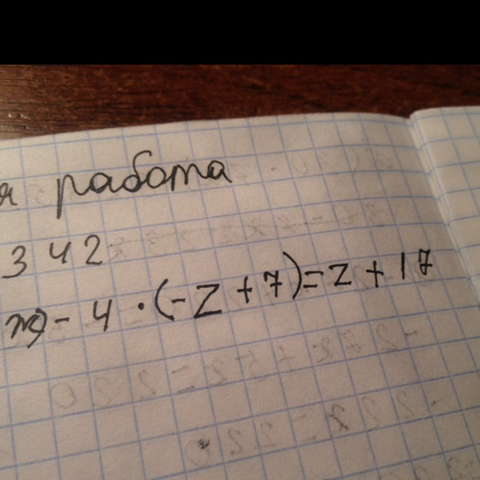 я работа
342
ж) - 4 · (-z + 7) = z + 17